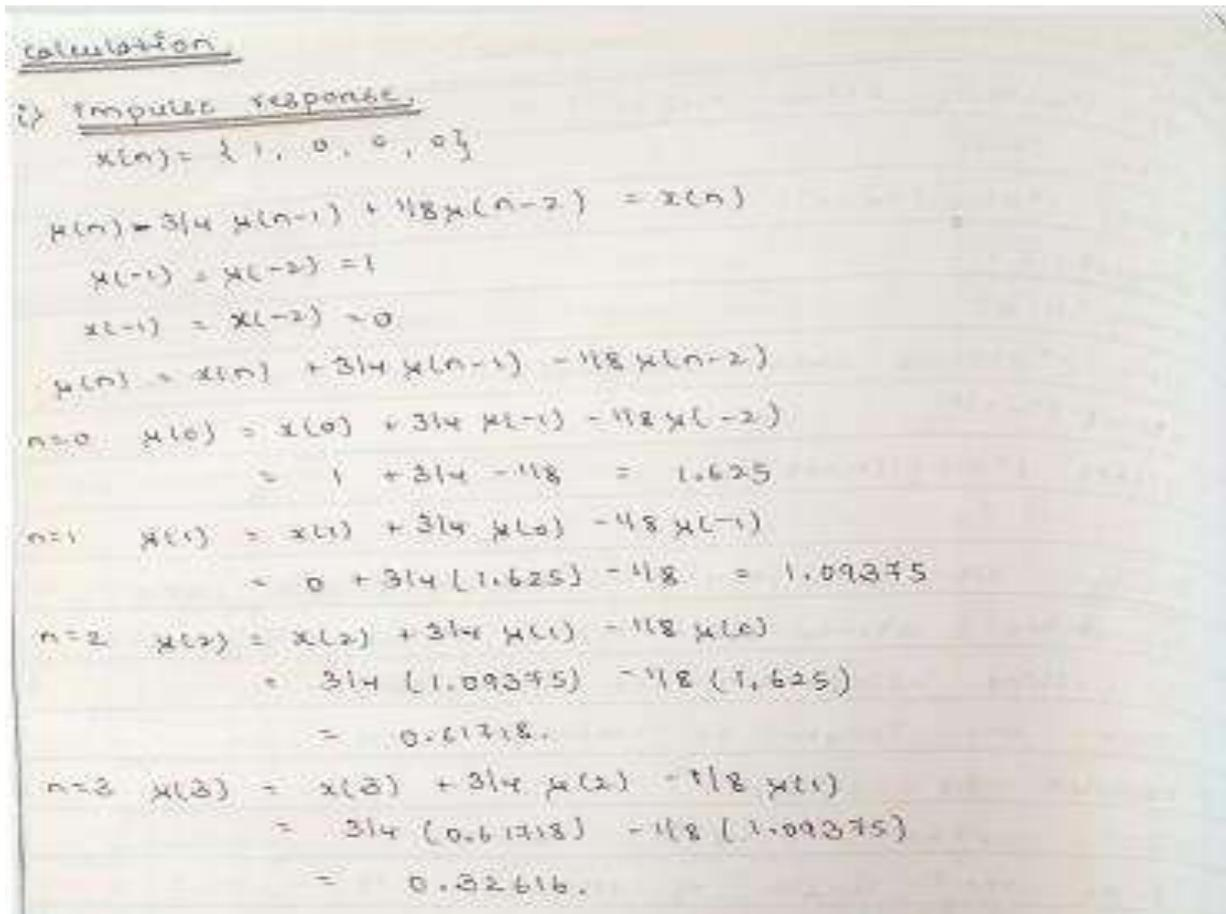 calculation
i) Impulse response.
x(n) = {1, 0, 0, 0}
y(n) - 3/4 y(n-1) + 1/8 y(n-2) = x(n)
y(-1) = y(-2) = 1
x(-1) = x(-2) = 0
y(n) = x(n) + 3/4 y(n-1) - 1/8 y(n-2)
n=0 y(0) = x(0) + 3/4 y(-1) - 1/8 y(-2)
= 1 + 3/4 - 1/8 = 1.625
n=1 y(1) = x(1) + 3/4 y(0) - 1/8 y(-1)
= 0 + 3/4 (1.625) - 1/8 = 1.09375
n=2 y(2) = x(2) + 3/4 y(1) - 1/8 y(0)
= 3/4 (1.09375) - 1/8 (1.625)
= 0.61718.
n=3 y(3) = x(3) + 3/4 y(2) - 1/8 y(1)
= 3/4 (0.61718) - 1/8 (1.09375)
= 0.32616.